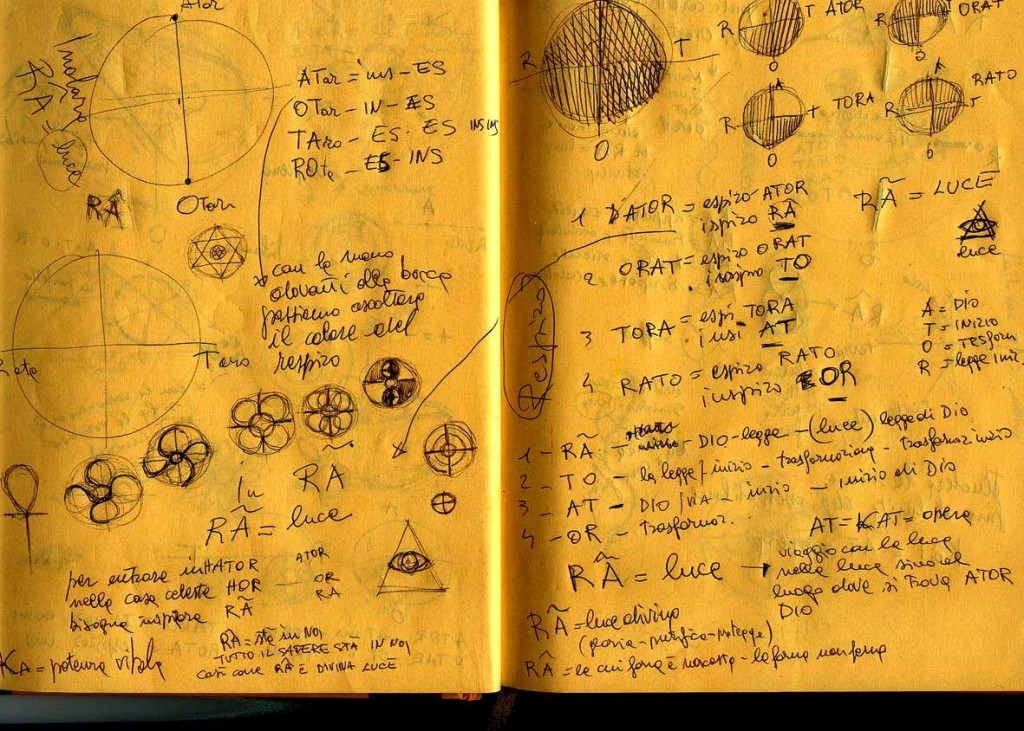 Ator
RÃ = luce
ATor = ins - ES
OTor - IN - ES
TAro - ES - ES INS INS
ROta - ES - INS
RÂ
OTor
con la mano
davanti alla bocca
possiamo ascoltare
il calore del
respiro
Rota
Taro
RÃ
In
RÃ = luce
per entrare in HATOR ATOR
nella casa celeste HOR - OR
bisogna inspirare RÃ RA
RA = sta in NOI
TUTTO IL SAPERE STA IN NOI
così come RÃ È DIVINA LUCE
KA = potenza vitale
R T
O
R T ATOR
O
R T ORAT
O
A
R T TORA
O
A
R T RATO
O
1 RATOR = espiro - ATOR
ispiro RÂ
RÃ = LUCE
luce
2 ORAT = espiro ORAT
inspiro TO
Respiro
3 TORA = espi. TORA
insi. AT
4 RATO = espiro RATO
inspiro OR
A = DIO
T = INIZIO
O = TRASFORM
R = legge iniz
1 - RÃ - DIO - legge - (luce) legge di Dio
2 - TO - la legge / inizio - trasformazione - trasformaz inizio
3 - AT - DIO / VIA - inizio - inizio di Dio
4 - OR - trasformaz.
AT = KAT = opera
RÃ = luce → viaggio con la luce
nella luce sino al
luogo dove si trova ATOR
DIO
RÃ = luce divina
(gloria - purifica - protegge)
RÂ = la cui forma è nascosta - la forma non forma